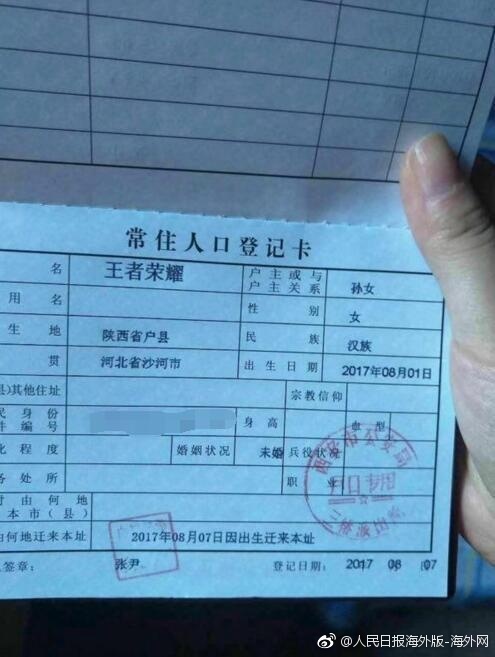 常住人口登记卡
名 王者荣耀 户主或与户主关系 孙女
用名 性别 女
生地 陕西省户县 民族 汉族
贯 河北省沙河市 出生日期 2017年08月01日
县)其他住址 宗教信仰
民身份件编号 身高 血型
化程度 婚姻状况 未婚 兵役状况
务处所 职业
时由何地本市(县)
何地迁来本址 2017年08月07日因出生迁来本址
签章: 张尹 登记日期: 2017 08 07
@人民日报海外版-海外网